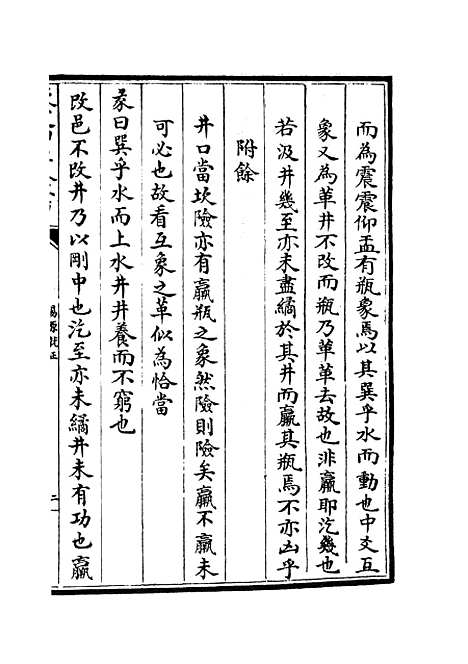 而為震震仰盂有瓶象焉以其巽乎水而動也中爻互
象又為革井不改而瓶乃革革去故也非羸耶汔幾也
若汲井幾至亦未盡繘於其井而羸其瓶焉不亦凶乎
附餘
井口當坎險亦有羸瓶之象然險則險矣羸不羸未
可必也故看互象之革似為恰當
彖曰巽乎水而上水井井養而不窮也
改邑不改井乃以剛中也汔至亦未繘井未有功也羸